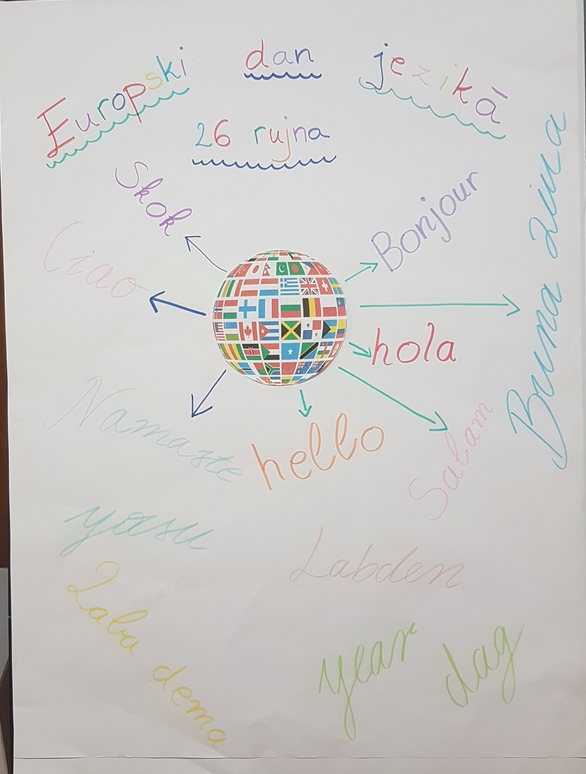 Europski dan jezikā
26 rujna
Skok
Bonjour
Ciao
Buna ziua
hola
Namaste
hello
Salam
yasu
Labden
Laba dema
year dag